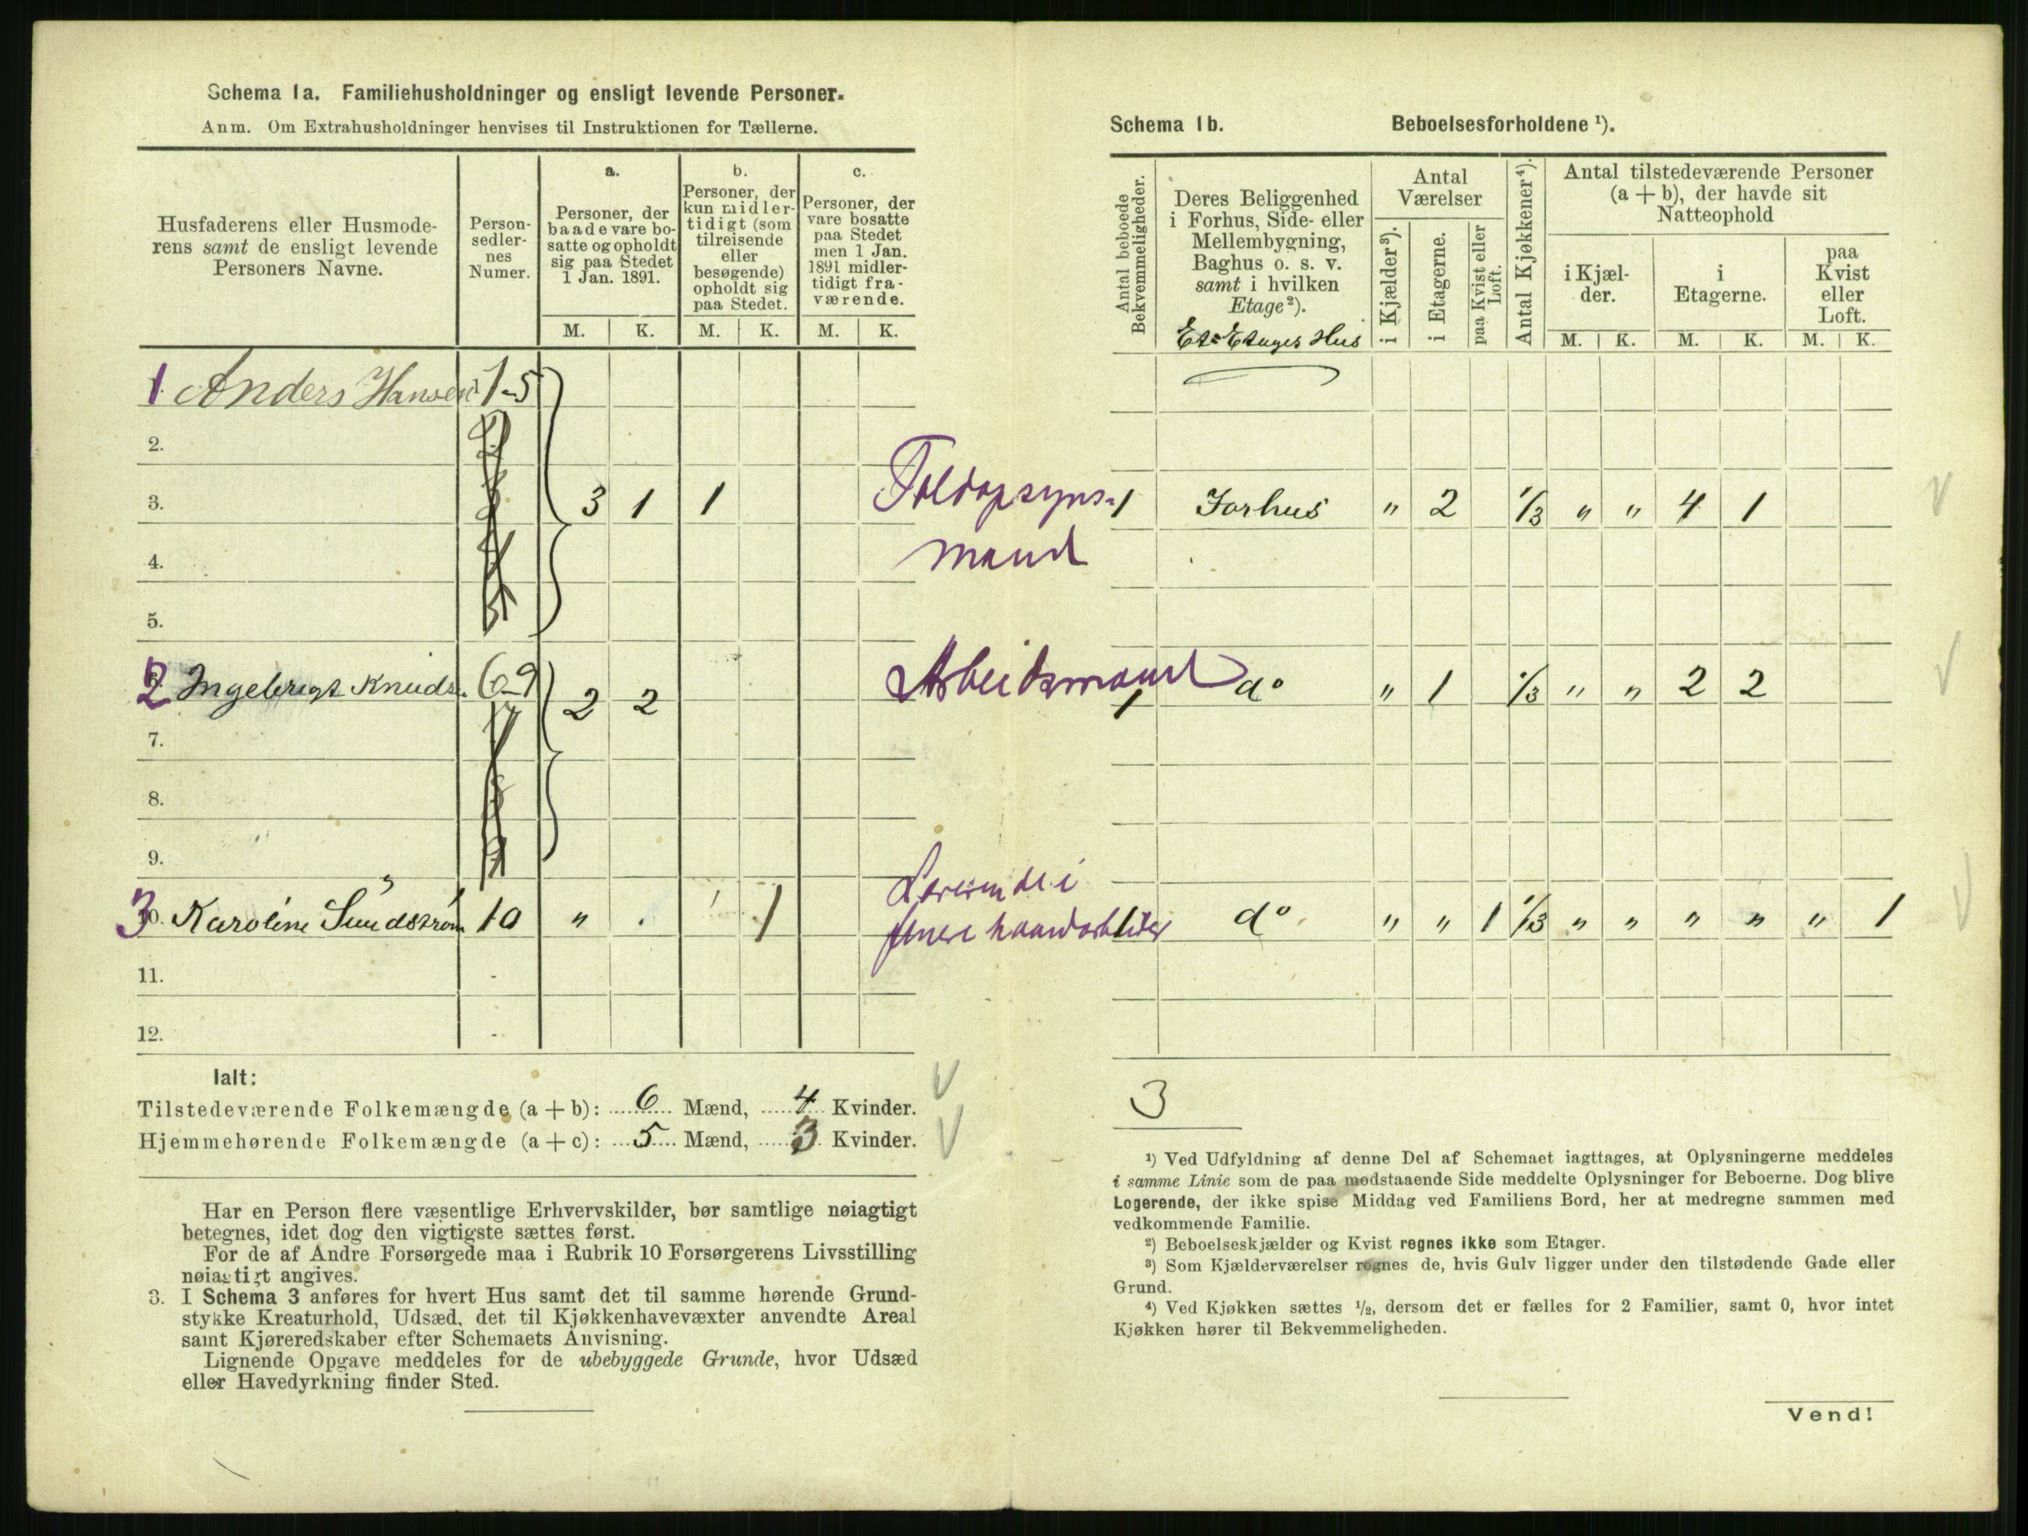 Schema 1a. Familiehusholdninger og ensligt levende Personer.
Anm. Om Extrahusholdninger henvises til Instruktionen for Tællerne.
Husfaderens eller Husmoderens samt de ensligt levende Personers Navne.
Personsedlernes Numer.
a. Personer, der baade vare bosatte og opholdt sig paa Stedet 1 Jan. 1891.
b. Personer, der kun midlertidigt (som tilreisende eller besøgende) opholdt sig paa Stedet.
c. Personer, der vare bosatte paa Stedet men 1 Jan. 1891 midlertidigt fraværende.
M. K. M. K. M. K.
1 Anders Hansen 1-5
2.
3. 3 1 1 Toldopsynsmand
4.
5.
2 Ingebrigt Knuds. 6-9 2 2 Arbeidsmand
7.
8.
9.
3 10. Karoline Sundstrøm 10 " . 1 Lærerinde i finere haandarbeider
11.
12.
Ialt:
Tilstedeværende Folkemængde (a + b): 6 Mænd, 4 Kvinder.
Hjemmehørende Folkemængde (a + c): 5 Mænd, 3 Kvinder.
Har en Person flere væsentlige Erhvervskilder, bør samtlige nøiagtigt
betegnes, idet dog den vigtigste sættes først.
For de af Andre Forsørgede maa i Rubrik 10 Forsørgerens Livsstilling
nøiagtigt angives.
3. I Schema 3 anføres for hvert Hus samt det til samme hørende Grund-
stykke Kreaturhold, Udsæd, det til Kjøkkenhavevæxter anvendte Areal
samt Kjøreredskaber efter Schemaets Anvisning.
Lignende Opgave meddeles for de ubebyggede Grunde, hvor Udsæd
eller Havedyrkning finder Sted.
Schema 1b. Beboelsesforholdene ¹).
Antal beboede Bekvemmeligheder.
Deres Beliggenhed i Forhus, Side- eller Mellembygning, Baghus o. s. v. samt i hvilken Etage²).
Et Etages Hus
Antal Værelser
i Kjælder³).
i Etagerne.
paa Kvist eller Loft.
Antal Kjøkkener⁴).
Antal tilstedeværende Personer (a + b), der havde sit Natteophold
i Kjælder.
i Etagerne.
paa Kvist eller Loft.
M. K. M. K. M. K.
1 Forhus " 2 1/3 " " 4 1
1 do " 1 1/3 " " 2 2
1 do " " 1 1/3 " " " " " 1
3
¹) Ved Udfyldning af denne Del af Schemaet iagttages, at Oplysningerne meddeles
i samme Linie som de paa modstaaende Side meddelte Oplysninger for Beboerne. Dog blive
Logerende, der ikke spise Middag ved Familiens Bord, her at medregne sammen med
vedkommende Familie.
²) Beboelseskjælder og Kvist regnes ikke som Etager.
³) Som Kjælderværelser regnes de, hvis Gulv ligger under den tilstødende Gade eller
Grund.
⁴) Ved Kjøkken sættes ½, dersom det er fælles for 2 Familier, samt 0, hvor intet
Kjøkken hører til Bekvemmeligheden.
Vend!